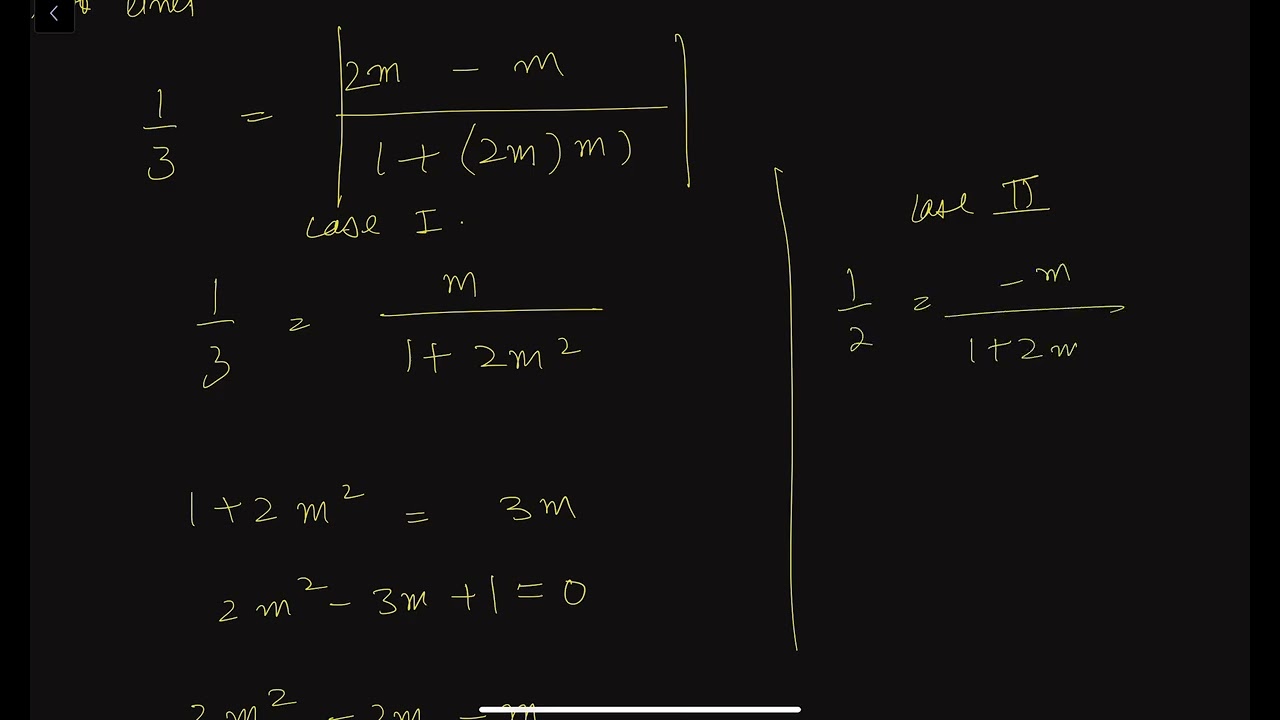 lines
1/3 = |(2m - m)/(1+(2m)m)|
case I.
1/3 = m/(1+2m²)
1+2m² = 3m
2m² - 3m +1 = 0
2m² - 2m - m
case II
1/2 = -m/(1+2m